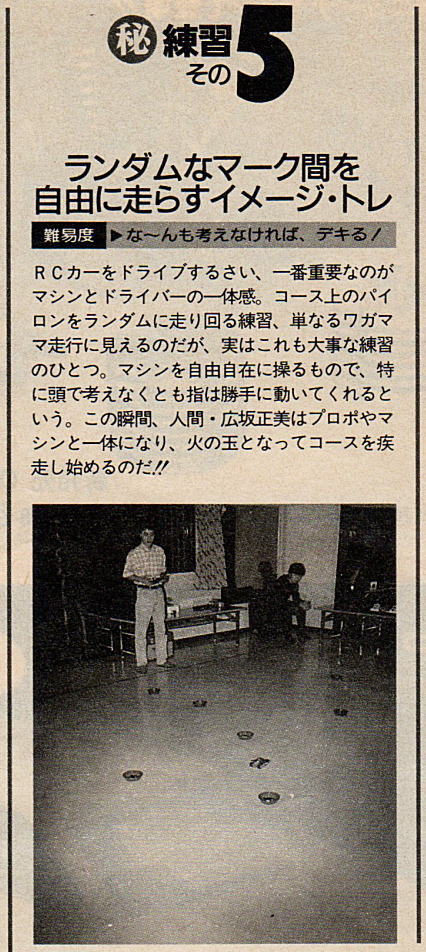 ㊙練習
その5
ランダムなマーク間を
自由に走らすイメージ・トレ
難易度 ▶な〜んも考えなければ、デキる!
RCカーをドライブするさい、一番重要なのが
マシンとドライバーの一体感。コース上のパイ
ロンをランダムに走り回る練習、単なるワガマ
マ走行に見えるのだが、実はこれも大事な練習
のひとつ。マシンを自由自在に操るもので、特
に頭で考えなくとも指は勝手に動いてくれると
いう。この瞬間、人間・広坂正美はプロポやマ
シンと一体になり、火の玉となってコースを疾
走し始めるのだ!!